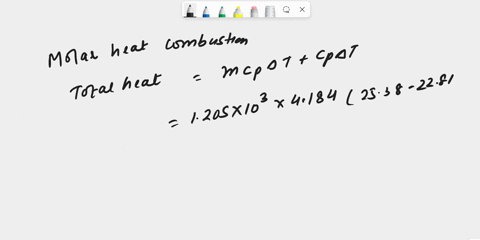 Molar heat combustion
Total heat = mcpΔT + cpΔT
= 1.205×10³ × 4.184 ( 25.38 - 22.81